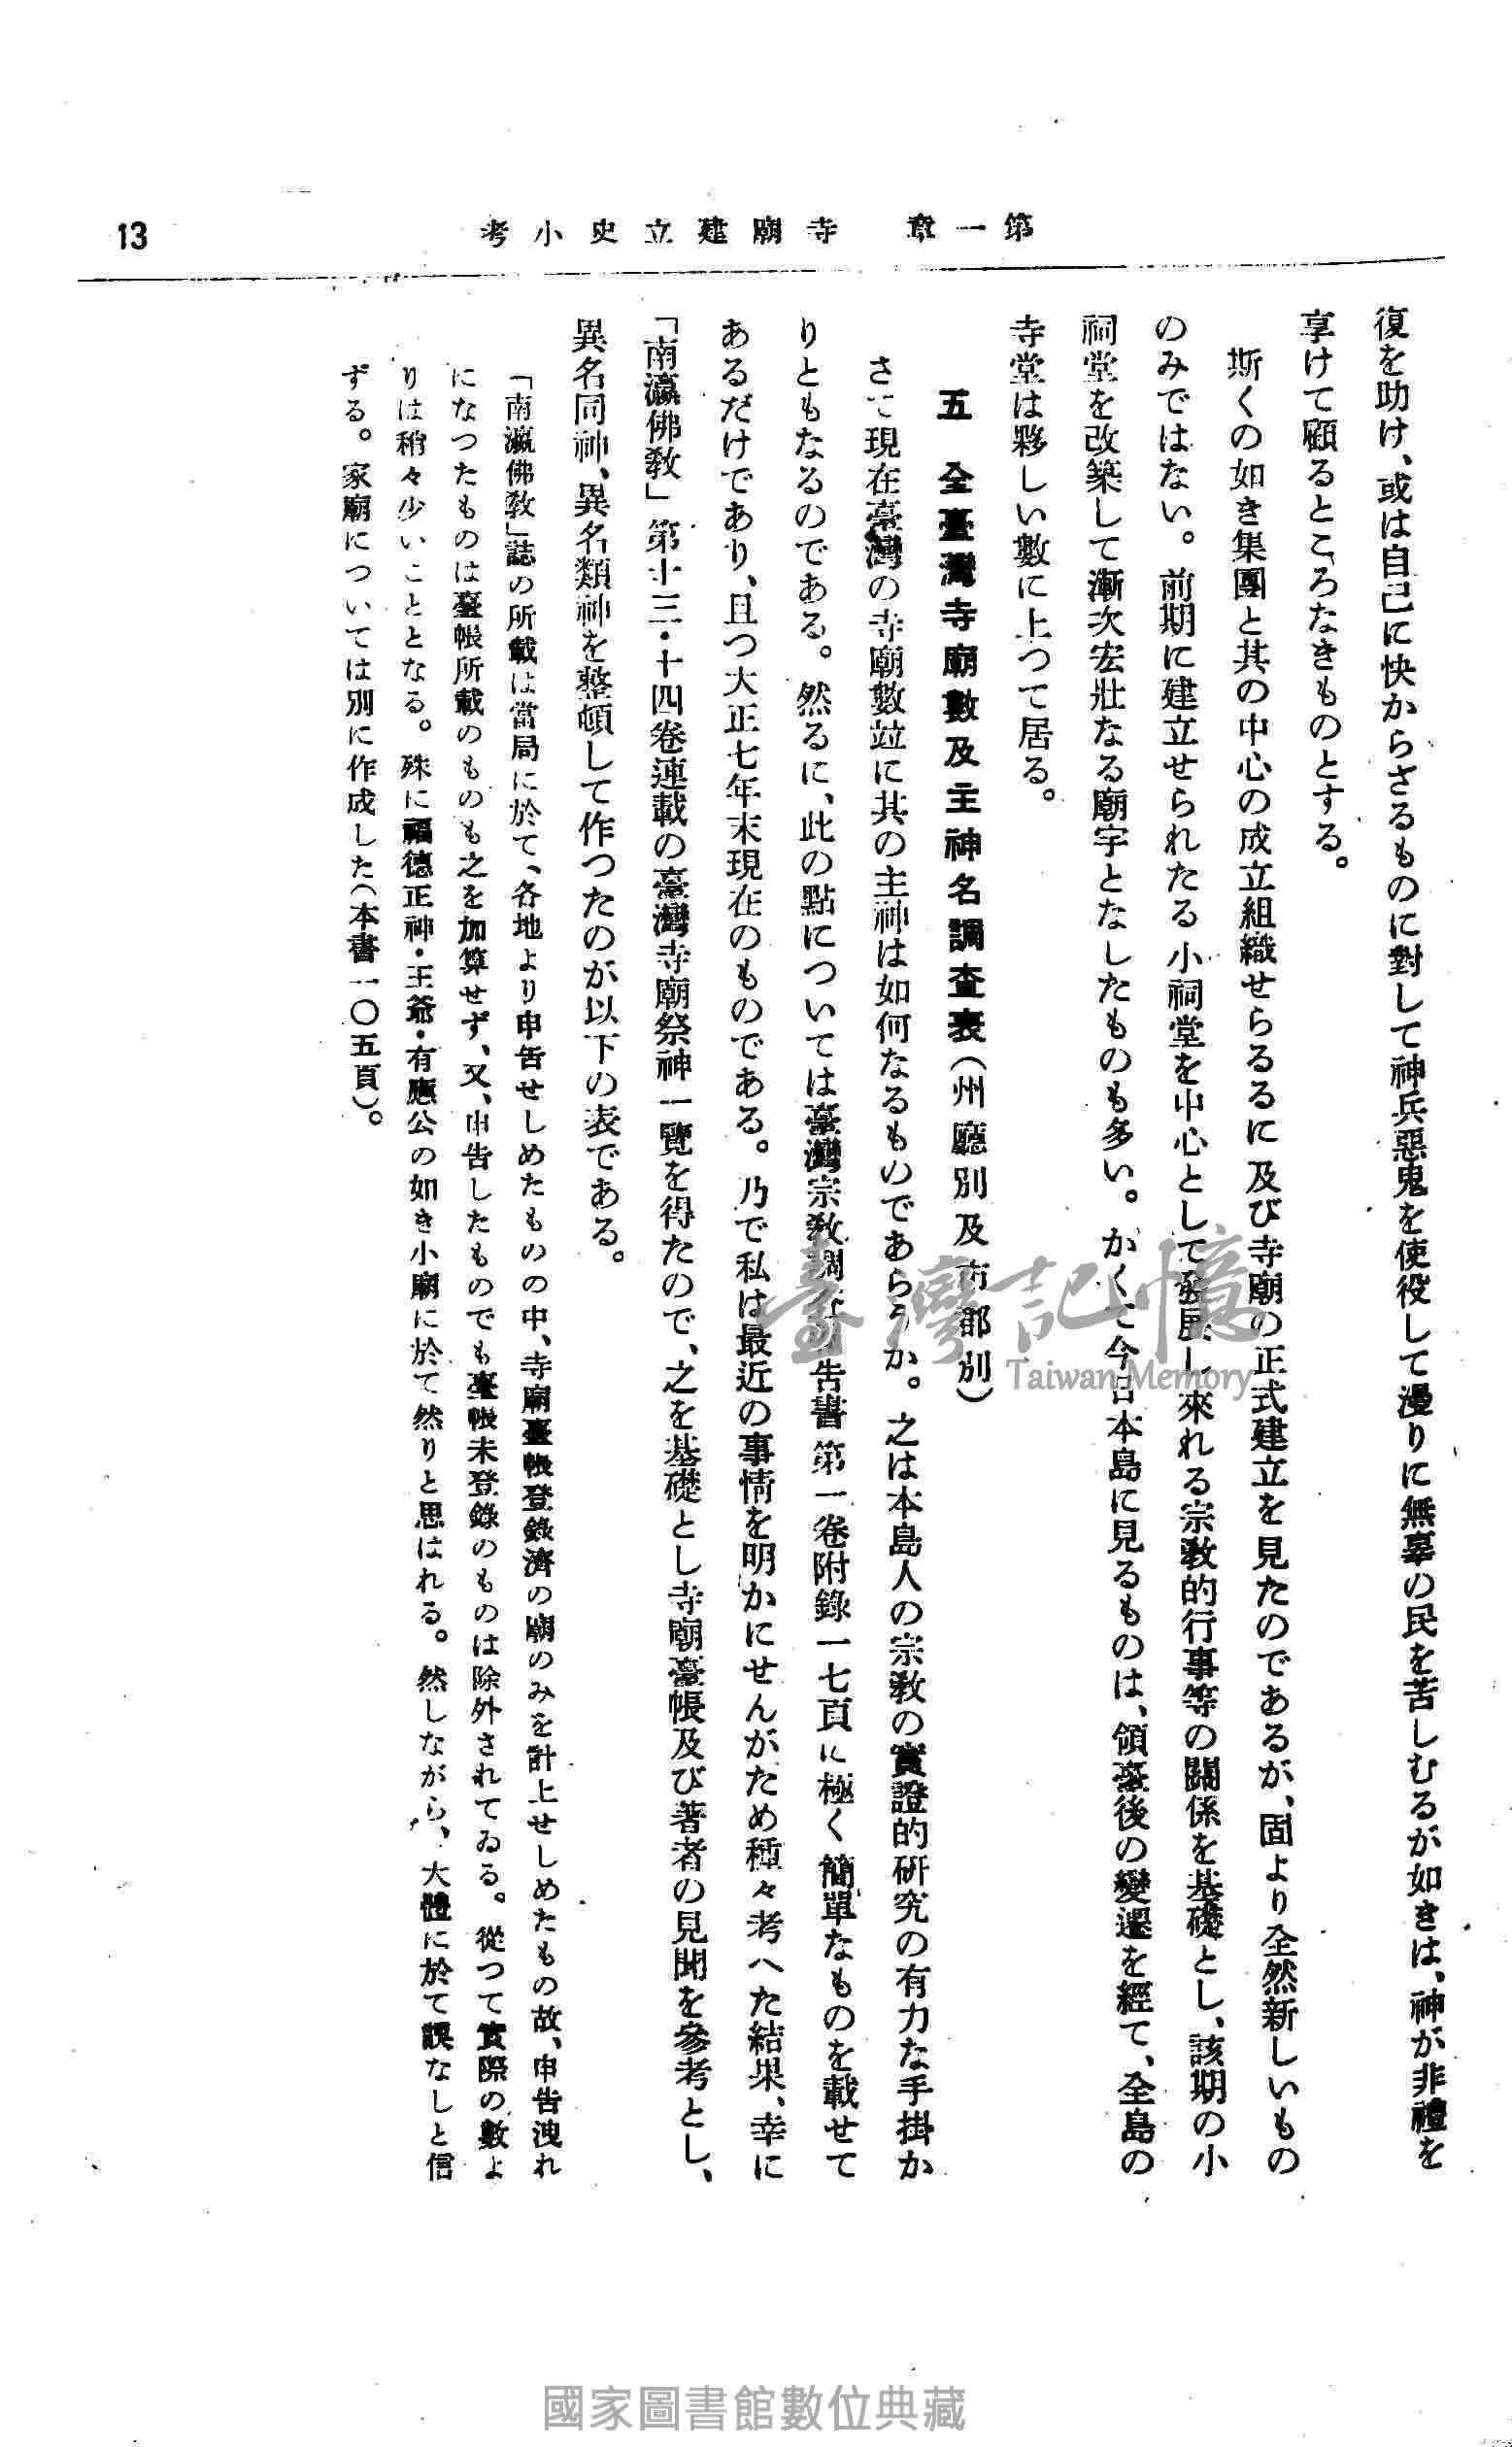 第一章　寺廟建立史小考
13
復を助け、或は自己に快からざるものに對して神兵惡鬼を使役して漫りに無辜の民を苦しむるが如きは、神が非禮を
享けて顧るところなきものとする。
斯くの如き集團と其の中心の成立組織せらるるに及び寺廟の正式建立を見たのであるが、固より全然新しいもの
のみではない。前期に建立せられたる小祠堂を中心として發展し來れる宗敎的行事等の關係を基礎とし、該期の小
祠堂を改築して漸次宏壯なる廟宇となしたものも多い。かくて今日本島に見るものは、領臺後の變遷を經て、全島の
寺堂は夥しい數に上つて居る。
五　全臺灣寺廟數及主神名調査表（州廳別及市郡別）
さて現在臺灣の寺廟數竝に其の主神は如何なるものであらうか。之は本島人の宗敎の實證的硏究の有力な手掛か
りともなるのである。然るに、此の點については臺灣宗敎調査報告書第一卷附錄一七頁に極く簡單なものを載せて
あるだけであり、且つ大正七年末現在のものである。乃で私は最近の事情を明かにせんがため種々考へた結果、幸に
「南瀛佛敎」第十三・十四卷連載の臺灣寺廟祭神一覽を得たので、之を基礎とし寺廟臺帳及び著者の見聞を參考とし、
異名同神、異名類神を整頓して作つたのが以下の表である。
「南瀛佛敎」誌の所載は當局に於て、各地より申吿せしめたものの中、寺廟臺帳登錄濟の廟のみを計上せしめたもの故、申吿洩れ
になつたものは臺帳所載のものも之を加算せず、又、申吿したものでも臺帳未登錄のものは除外されてゐる。從つて實際の數よ
りは稍々少いこととなる。殊に福德正神・王爺・有應公の如き小廟に於て然りと思はれる。然しながら、大體に於て誤なしと信
ずる。家廟については別に作成した（本書一〇五頁）。
臺灣記憶
Taiwan Memory
國家圖書館數位典藏